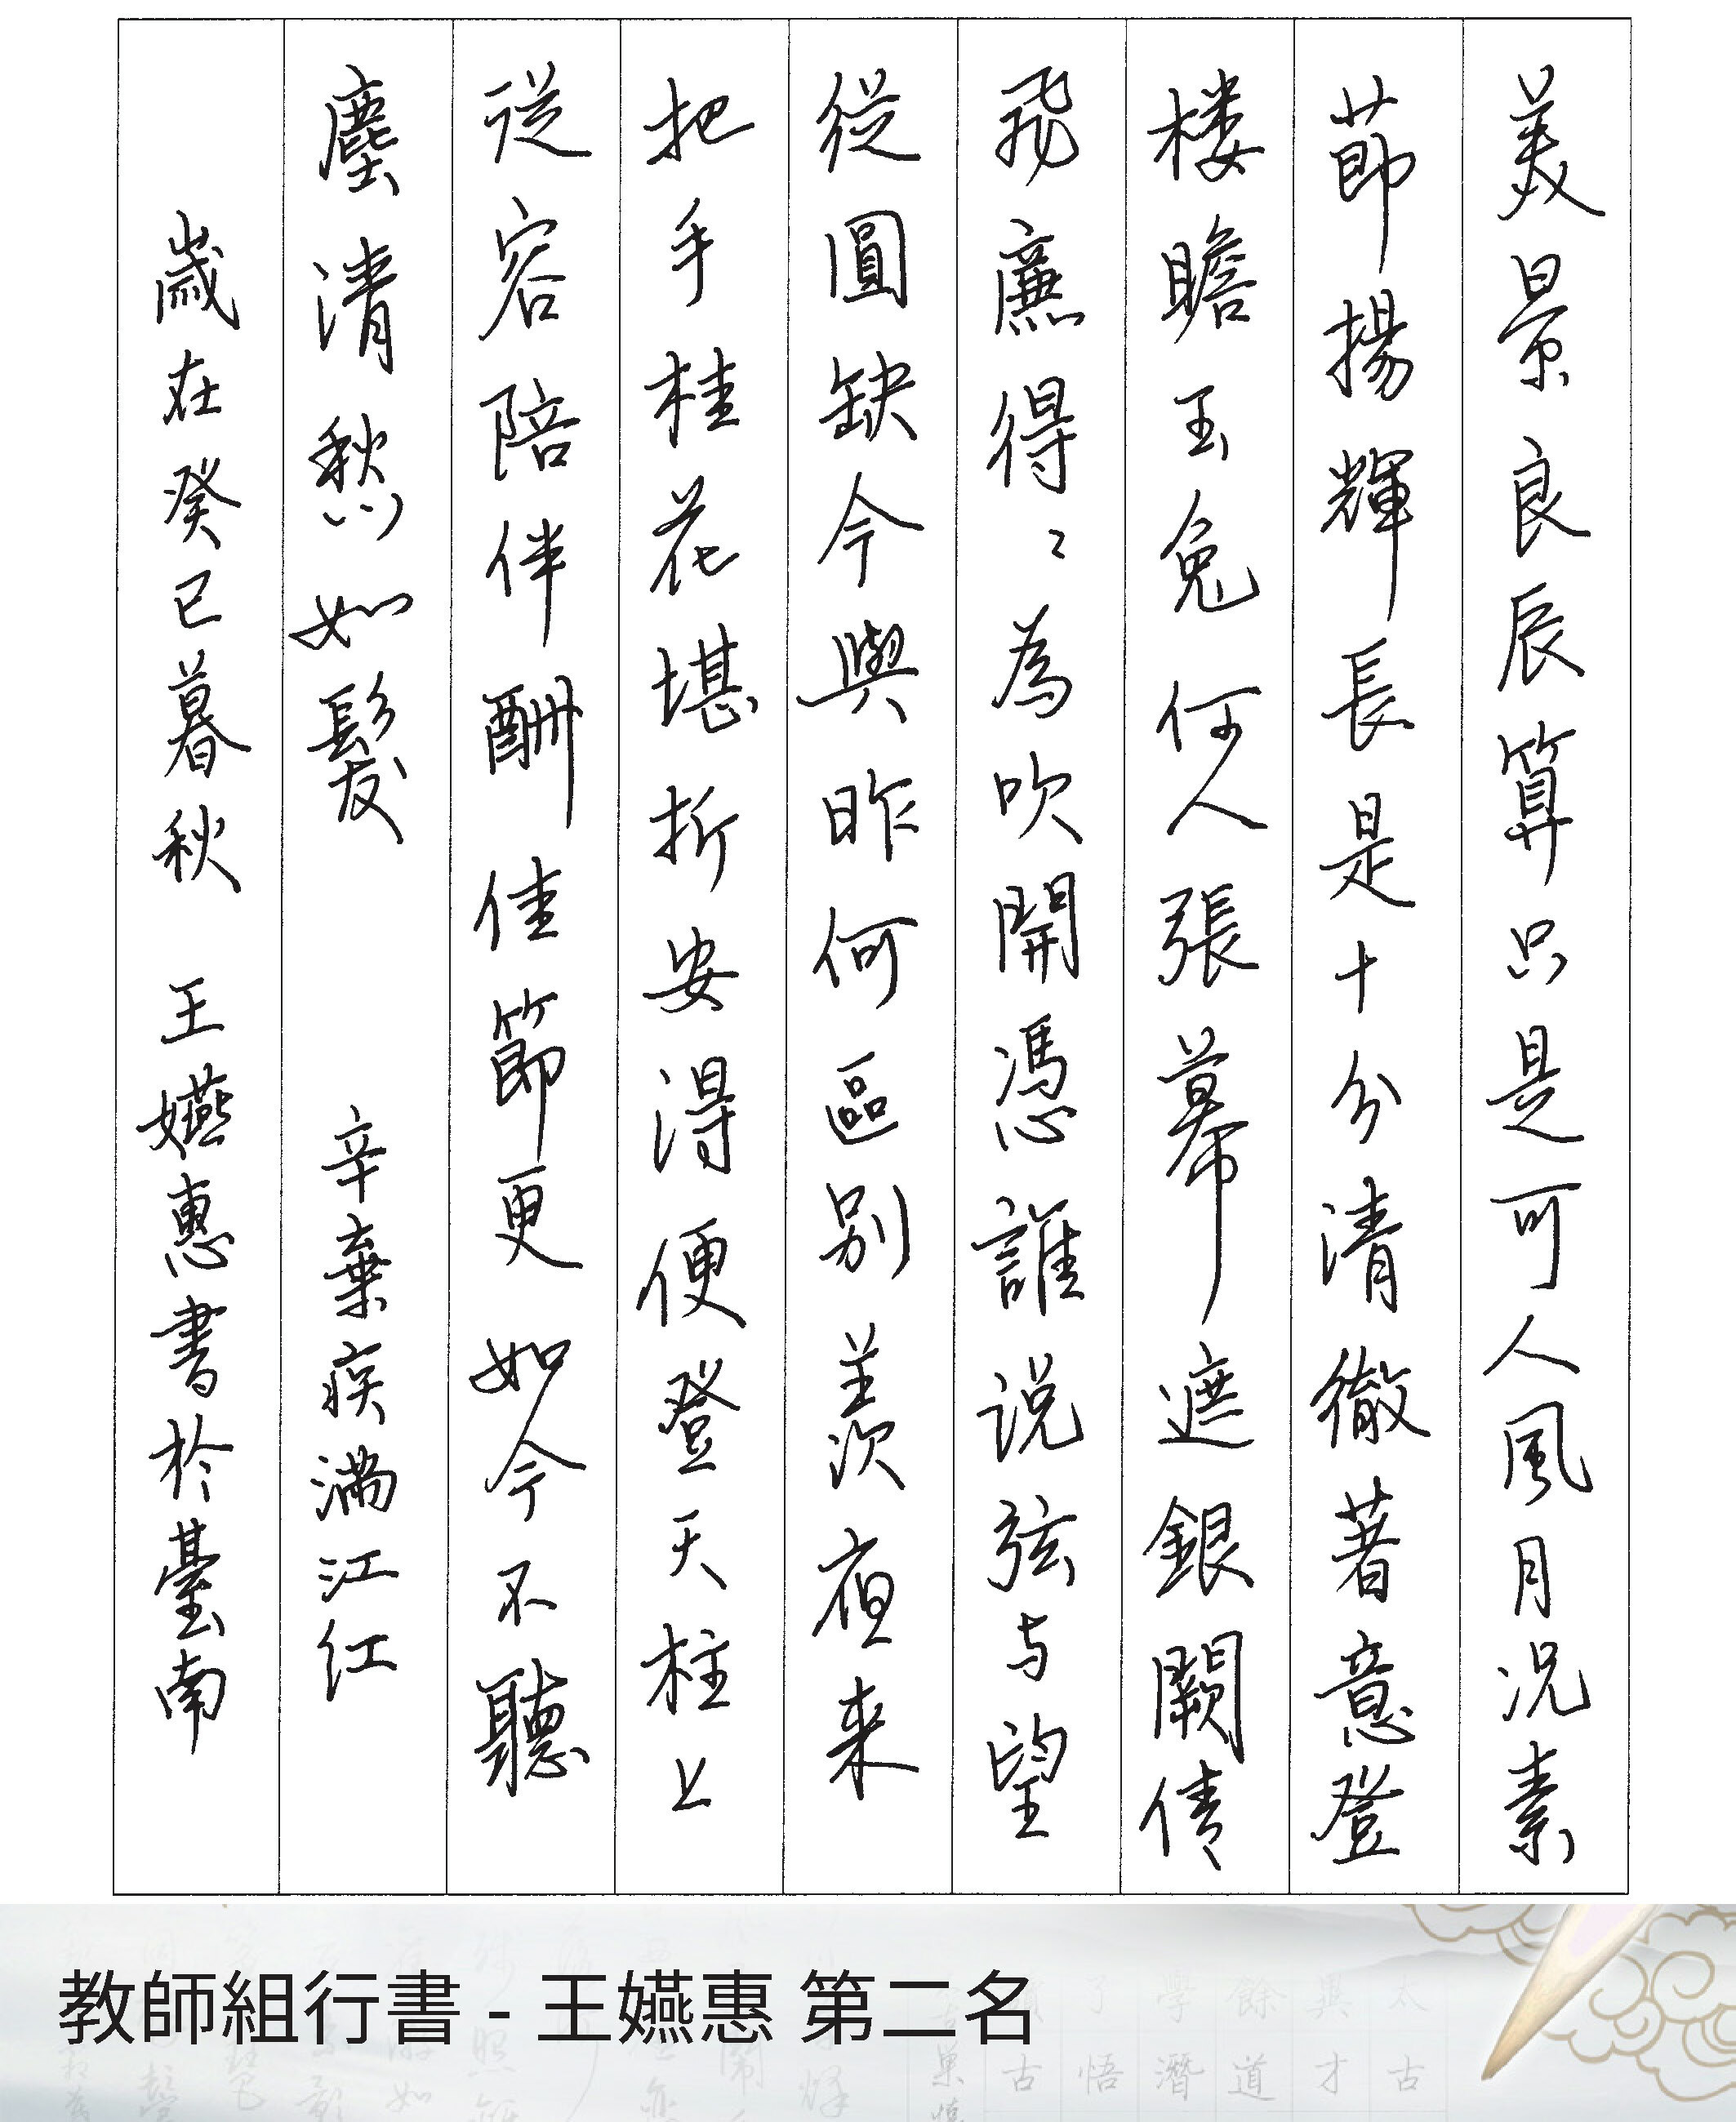 美景良辰算只是可人風月况素
節揚輝長是十分清徹著意登
楼瞻玉兔何人張幕遮銀闕倩
飛廉得〻為吹開憑誰说弦与望
從圓缺今與昨何區别羡夜来
把手桂花堪折安得便登天柱上
從容陪伴酬佳節更如今不聽
塵清愁如髮 辛棄疾滿江红
歲在癸巳暮秋 王嬿惠書於臺南
教師組行書 - 王嬿惠 第二名